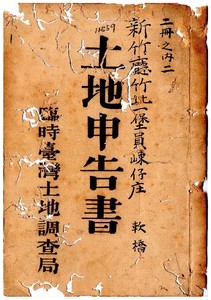 二冊之內二
新竹廳竹北一堡員崠仔庄
軟橋
土地申告書
臨時臺灣土地調查局